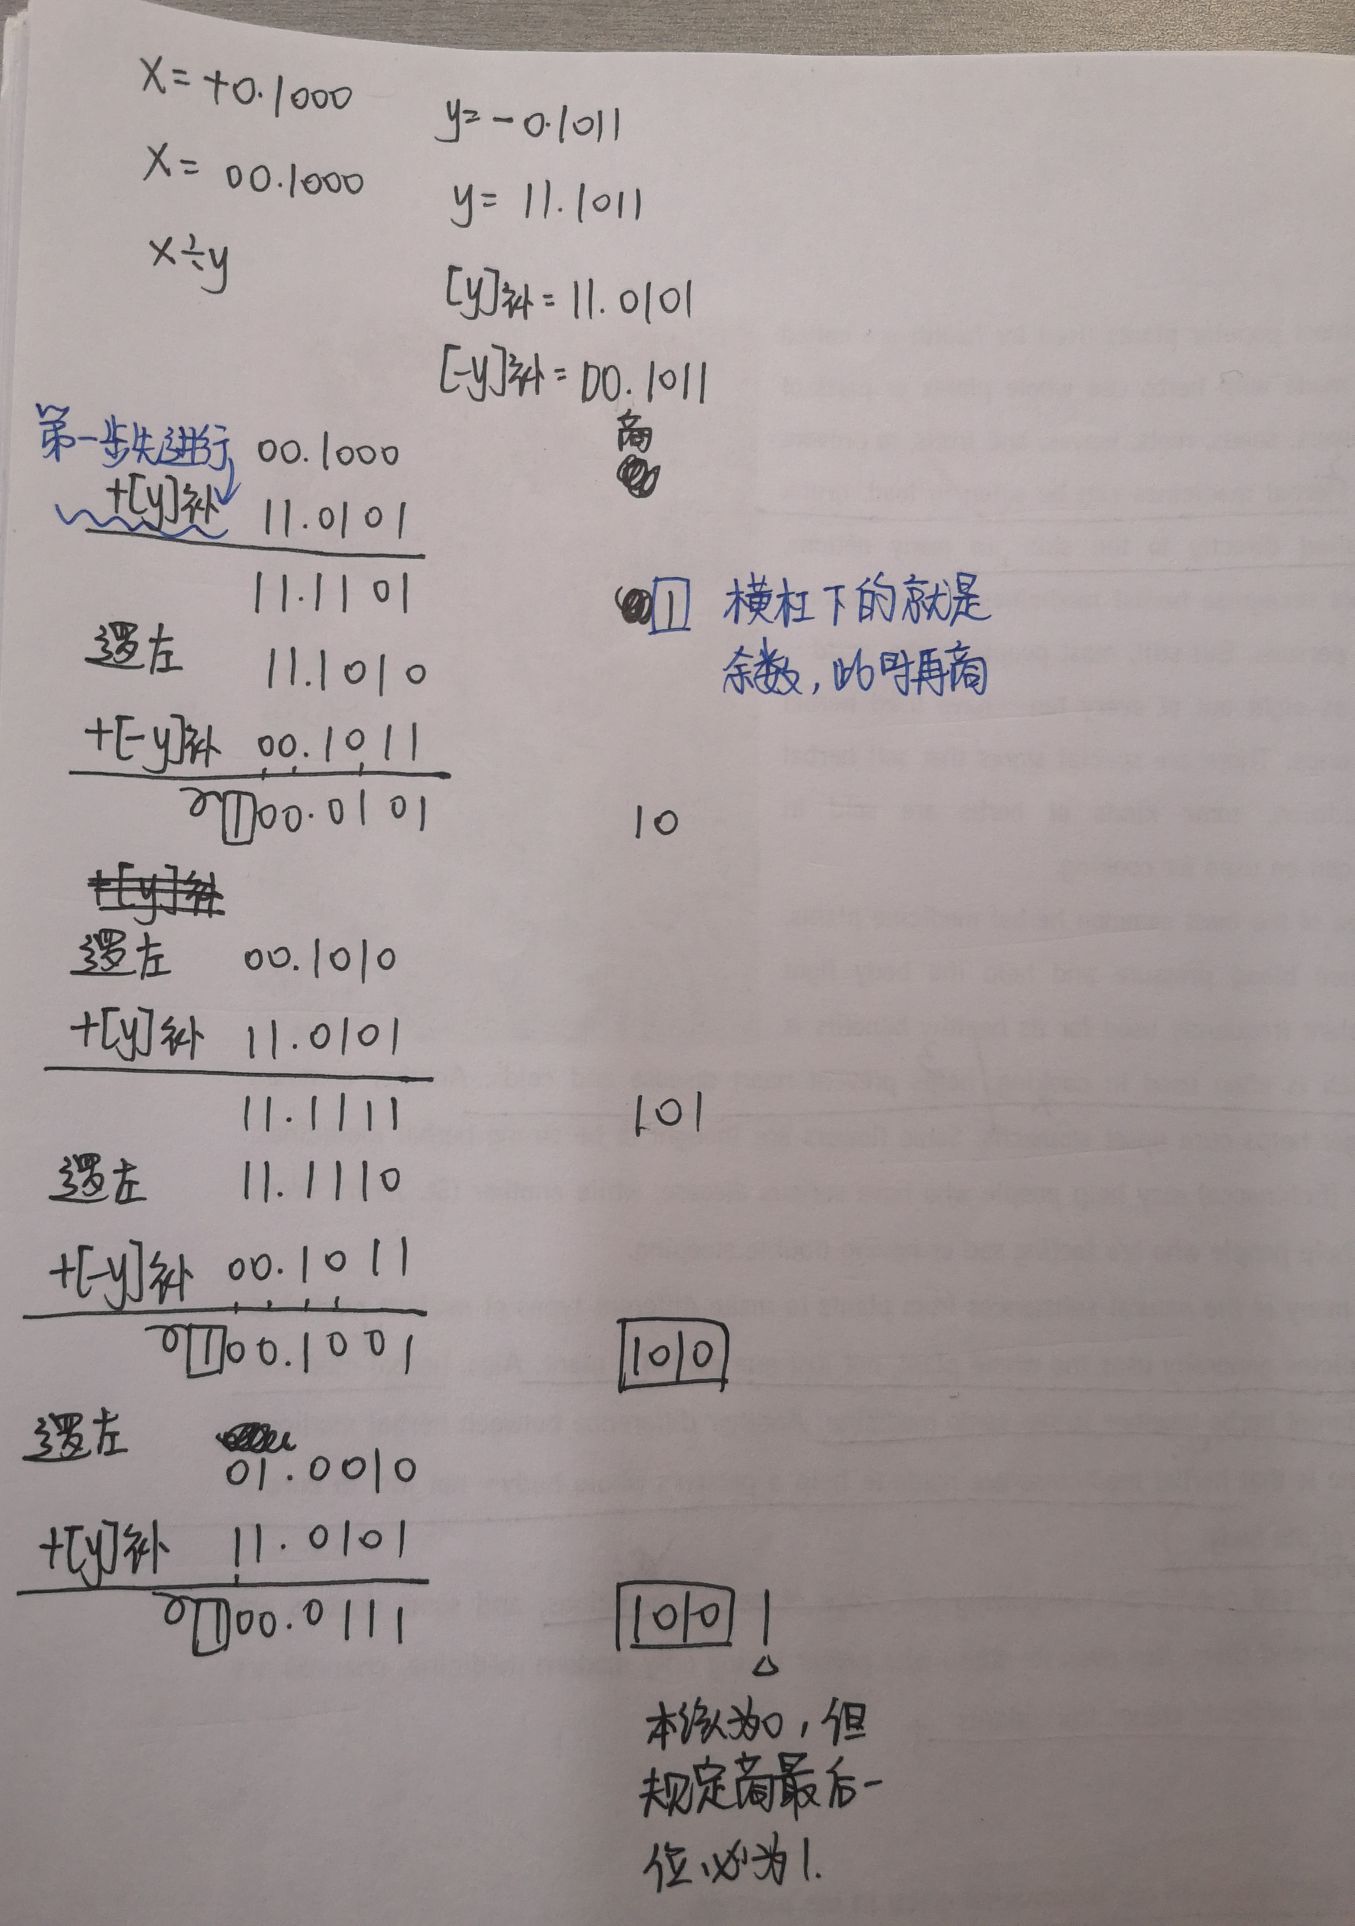 X=+0.1000
y=-0.1011
X=00.1000
y=11.1011
x÷y
[y]补=11.0101
[-y]补=00.1011
商
第一步先进行 00.1000
+[y]补 11.0101
11.1101 1 横杠下的就是
逻左 11.1010 余数,此时再商
+[-y]补 00.1011
1 00.0101 10
+[y]补
逻左 00.1010
+[y]补 11.0101
11.1111 101
逻左 11.1110
+[-y]补 00.1011
1 00.1001 1010
逻左 01.0010
+[y]补 11.0101
1 00.0111 1010 1
本该为0,但
规定商最后一
位必为1.